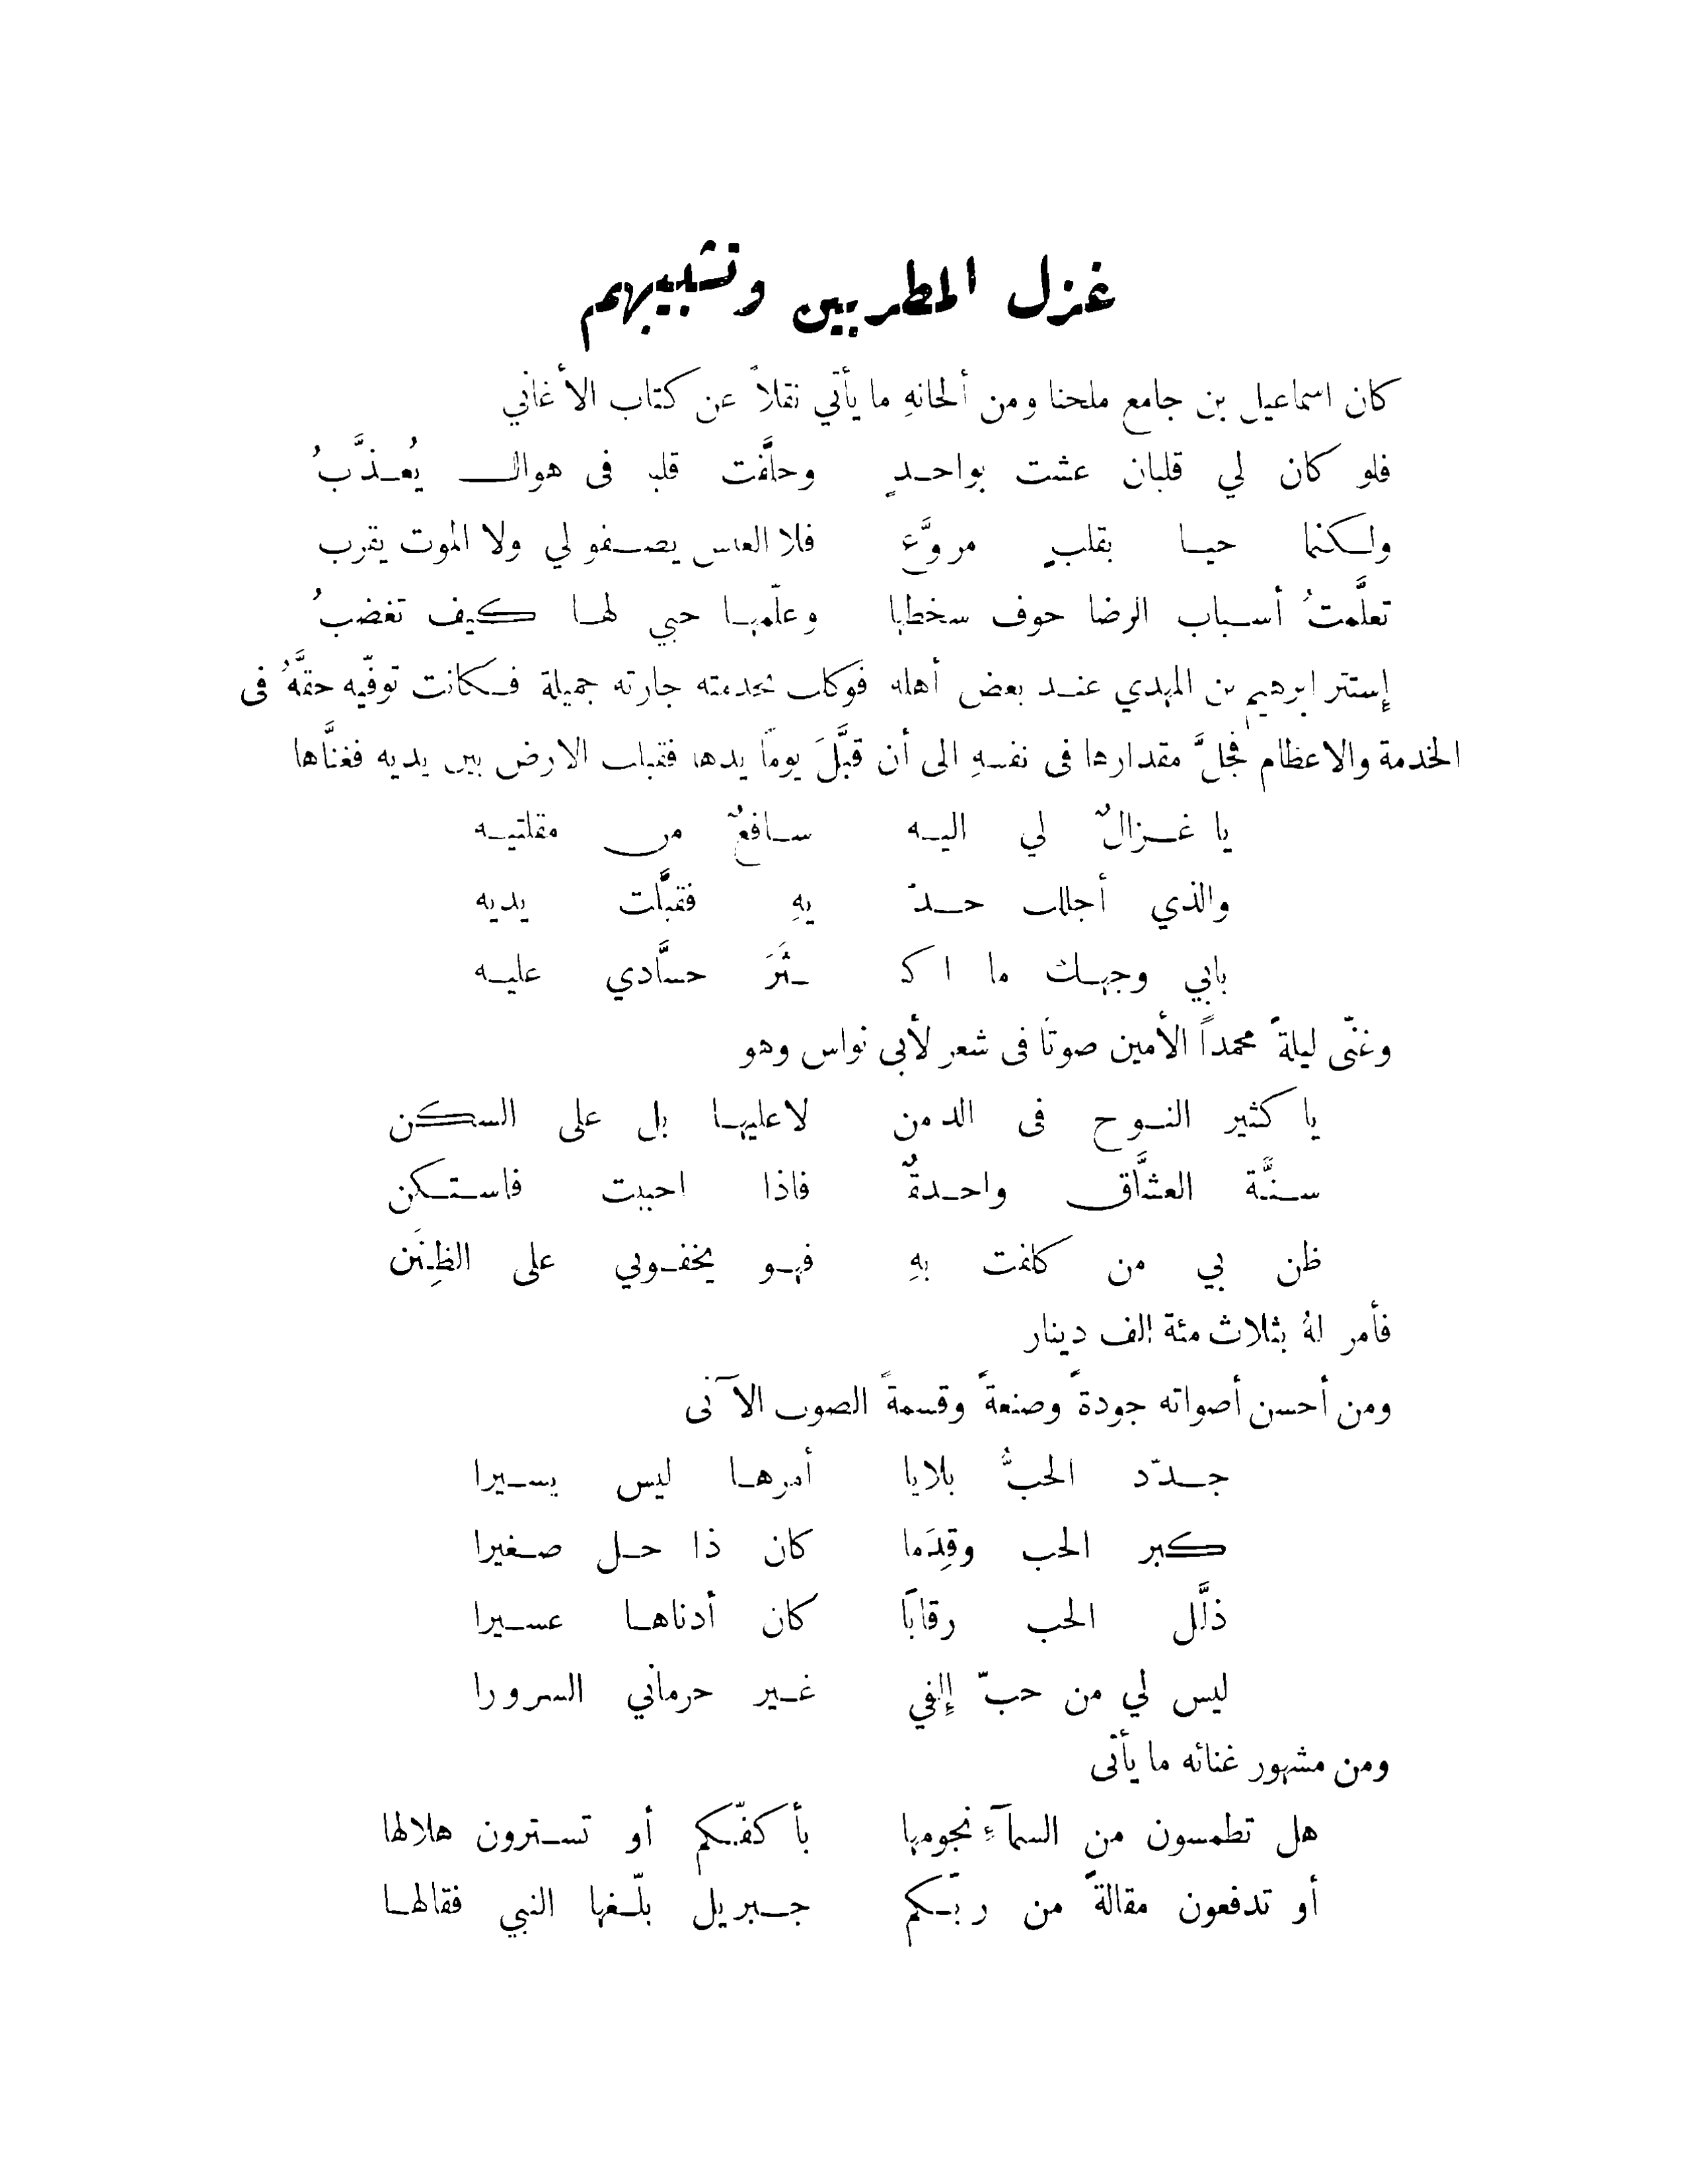 غزل المطربين وتشبيبهم
كان اسماعيل بن جامع ملحنا ومن ألحانهِ ما يأتي نقلاً عن كتاب الأغاني
فلو كان لي قلبان عشت بواحدٍ وخلَّفت قلبا فى هواك يُعذَّبُ
ولكنما حيا بقلبٍ مروَّع فلا العيش يصفو لي ولا الموت يقرب
تعلَّمتُ أسباب الرضا خوف سخطها وعلّمها حبي لها كيف تغضبُ
إستتر ابرهيم بن المهدي عند بعض أهله فوكلت بخدمته جارته جميلة فكانت توفّيه حقَّهُ فى
الخدمة والاعظام فجلَّ مقدارها فى نفسهِ الى أن قبَّلَ يومًا يدها فقبلت الارض بين يديه فغنَّاها
يا غزالٌ لي اليه سافعٌ من مقلتيه
والذي أجللت خدّ يهِ فقبَّلت يديه
بابي وجهك ما اك ثَرَ حسَّادي عليه
وغنّى ليلةً محمداً الأمين صوتًا فى شعر لأبى نواس وهو
يا كثير النوح فى الدمن لا عليها بل على السكن
سنَّة العشَّاق واحدةٌ فاذا احببت فاستكن
ظن بي من كلفت بهِ فهو يجفوبي على الظِنَن
فأمر لهُ بثلاث مئة الف دينار
ومن أحسن أصواته جودةً وصنعةً وقسمةً الصوت الآتى
جدّد الحبُّ بلايا أمرها ليس يسيرا
كبر الحب وقِدَما كان ذا حل صغيرا
ذلَّل الحب رقابًا كان أدناها عسيرا
ليس لي من حبّ إلفي غير حرماني السرورا
ومن مشهور غنائه ما يأتى
هل تطمسون من السمآءِ نجومها بأكفّكم أو تسترون هلالها
أو تدفعون مقالةً من ربّكم جبريل بلّغها النبي فقالها